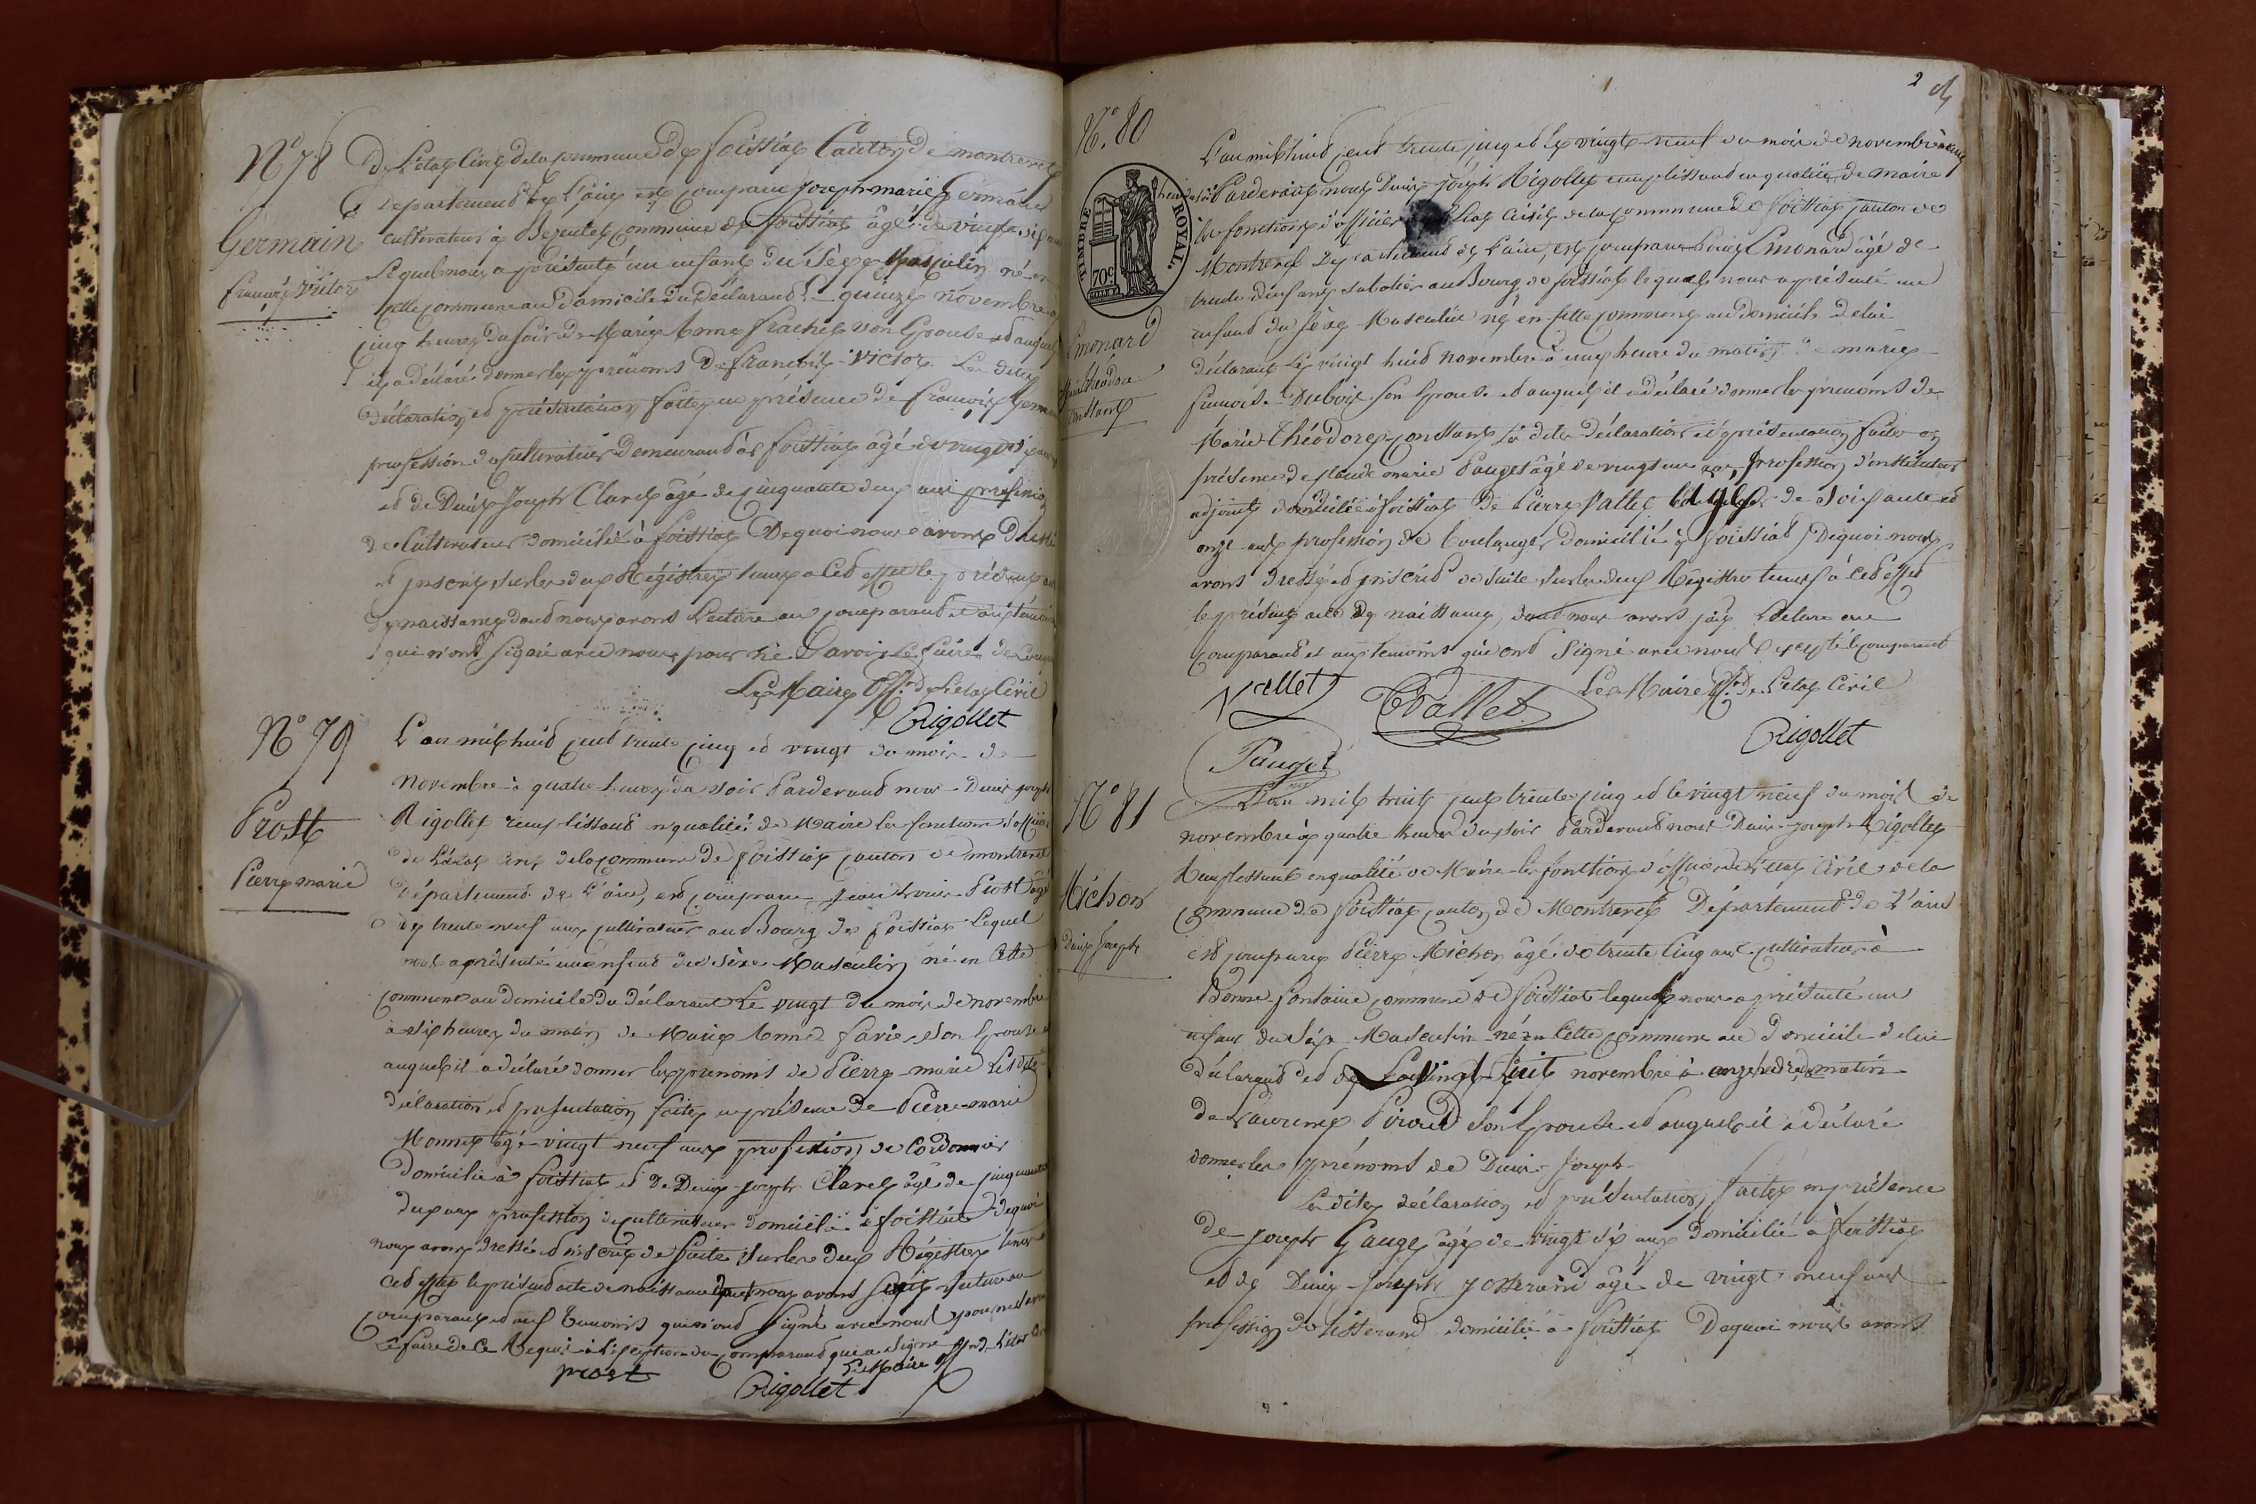 N.° 78
Germain
françois victor
De L'etat Civil de la commune de foissiat Canton de montrevel
departement de L'ain est comparu joseph marie Germain
cultivateur à Bezentet commune de foissiat âgé de vingt six ans
Lequel nous a présenté un enfant du Sèxe Masculin né en
cette commune au Domicile du Déclarant le quinze novembre à
cinq heures du soir de Marie Anne son Epouse et auquel
il a déclaré donner les prénoms De françois Victor Les dites
Déclaration et présentation faites en présence de françois Germain
profession de cultivateur Demeurant à foissiat âgé de vingt ans
et de Denis Joseph Clarel âgé de cinquante deux ans profession
de Cultivateur domicilié à foissiat De quoi nous avons Dressé
et inscrit sur les deux Régistres tenus a cet effet le présent acte
de naissance dont nous avons Lecture au comparant et aux témoins
qui n'ont signé avec nous pour ne Savoir Le faire de ce
Le Maire Off. de L'etat Civil
Rigollet
N.° 79
Prost
Pierre marie
L'an mil huit cent trente cinq et vingt du mois de
Novembre à quatre heures du soir Pardevant nous Denis joseph
Rigollet remplissant en qualité de Maire les fonctions d'officier
de L'état Civil de la commune De foissiat canton de montrevel
Département de L'ain, est comparu jean Louis Prost âgé
de trente neuf ans cultivateur au Bourg de foissiat Lequel
nous a présenté un enfant du sèxe Masculin né en Cette
commune au domicile du déclarant Le vingt du mois de novembre
à six heures du matin de Marie Anne favier son Epouse
auquel il a déclaré donner les prenoms de Pierre marie Les dites
déclaration et présentation faites en présence de Pierre marie
Monnet âgé vingt neuf ans profession de Cordonnier
Domicilié à foissiat et De Denis joseph Clarel âgé de cinquante
deux ans profession de cultivateur domicilié à foissiat De quoi
nous avons dressé et inscrit de suite sur les deux Régistres tenus
cet effet le présent acte de naissance dont nous avons fait lecture au
comparant et aux Temoins qui n'ont signé avec nous pour ne savoir
Le faire de Ce Requis à L'éxception du comparant qui a signé Off. de L'état
Le Maire
prost
Rigollet
2
N.° 80
TIMBRE ROYAL.
70c
Emonard
Marie théodore
Constant
L'an mil huit cent trente cinq et le vingt neuf du mois de novembre à
heures Pardevant nous Denis joseph Rigollet remplissant en qualité de maire
les fonctions d'officier de L'état Civil de la commune de foissiat canton de
Montrevel Departement de L'ain, est comparu Louis Emonard âgé de
trente deux ans sabotier au Bourg de foissiat lequel nous a présenté un
enfant du sèxe Masculin né en cette commune au domicile de lui
déclarant Le vingt huit novembre à cinq heure du matin de marie
francoise Duboix son Epouse et auquel il a déclaré donner les prenoms de
Marie Théodore Constant Les dites Déclaration et présentation faites en
présence de Claude marie Pauget âgé de vingt un ans, profession d'instituteur
adjoint domicilié à foissiat De Pierre Vallet âgé de Soixante et
onze ans profession de boulanger domicilié à foissiat De quoi nous
avons dressé et inscrit de suite sur les deux Régistres tenus à cet effet
le présent acte de naissance, dont nous avons fait Lecture au
comparant et aux temoins qui ont Signé avec nous excepté le comparant
Le Maire Off. de L'etat Civil
Vallet
Vallet
Rigollet
Pauget
N.° 81
Michon
Denis Joseph
L'an mil huit cent trente cinq et le vingt neuf du mois de
novembre à quatre heures du soir Pardevant nous Denis joseph Rigollet
Remplissant en qualité de Maire les fonctions d'officier de L'etat Civil de la
commune de foissiat canton de Montrevel Département de L'ain
est comparu Pierre Michon âgé de trente cinq ans cultivateur à
Bonne fontaine commune de foissiat lequel nous a présenté un
enfant du Sèxe Masculin né en Cette commune au domicile de lui
déclarant Le vingt huit novembre à onze heures du matin
de Laurence Piroud son Epouse et auquel il a déclaré
donner les prénoms de Denis Joseph
Les dites déclaration et présentation faites en présence
de joseph Gauge âgé de vingt six ans domicilié à foissiat
et de Denis Joseph josserand âgé de vingt neuf ans
profession de tisserand domicilié à foissiat De quoi nous avons